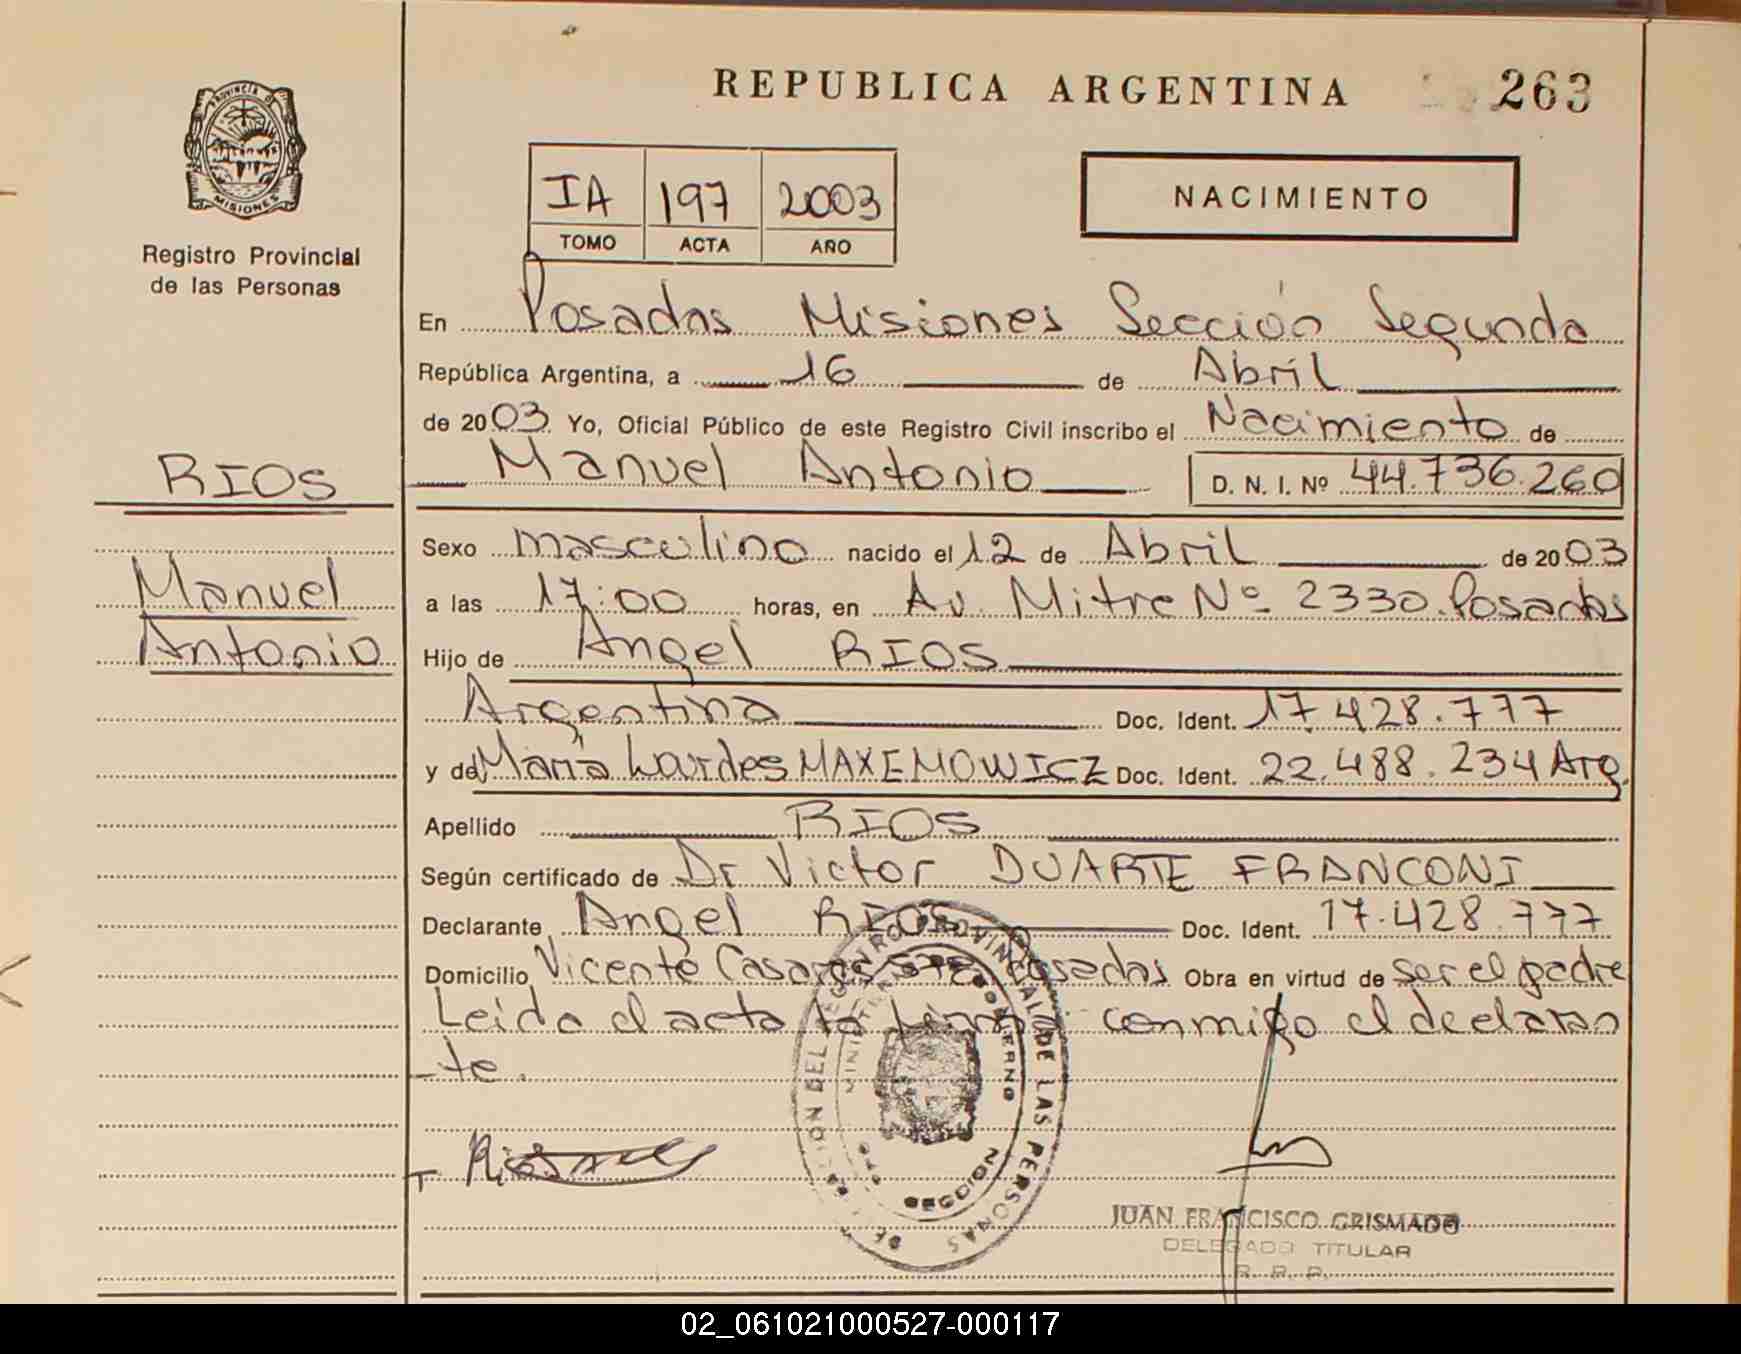 REPUBLICA ARGENTINA 263
PROVINCIA DE
MISIONES
Registro Provincial
de las Personas
IA 197 2003
TOMO ACTA AÑO
NACIMIENTO
En Posadas Misiones Sección Segunda
República Argentina, a 16 de Abril
de 2003 Yo, Oficial Público de este Registro Civil inscribo el Nacimiento de
Manuel Antonio D. N. I. Nº 44.736.260
RIOS
Manuel
Antonio
Sexo masculino nacido el 12 de Abril de 2003
a las 17:00 horas, en Av. Mitre Nº 2330 Posadas
Hijo de Angel RIOS
Argentina Doc. Ident. 17.428.777
y de María Lourdes MAXEMOWICZ Doc. Ident. 22.488.234 Arg.
Apellido RIOS
Según certificado de Dr Victor DUARTE FRANCONI
Declarante Angel RIOS Doc. Ident. 17.428.777
Domicilio Vicente Casares Posadas Obra en virtud de ser el padre
Leida el acta la firma conmigo el declaran
te.
PROVINCIAL DE LAS PERSONAS
JUAN FRANCISCO GRISMADO
DELEGADO TITULAR
R. P. P.
02_061021000527-000117